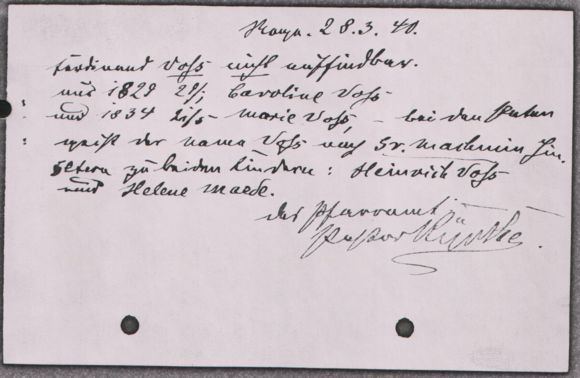 28.3.40.
Ferdinand Voss nicht auffindbar.
nur 1829 Caroline Voss
und 1834 Marie Voss, – bei den Paten
weist der name Voss nach Gr. Machmin hin.
Eltern zu beiden Kindern: Heinrich Voss
und Helene Maede.
das Pfarramt
Pastor